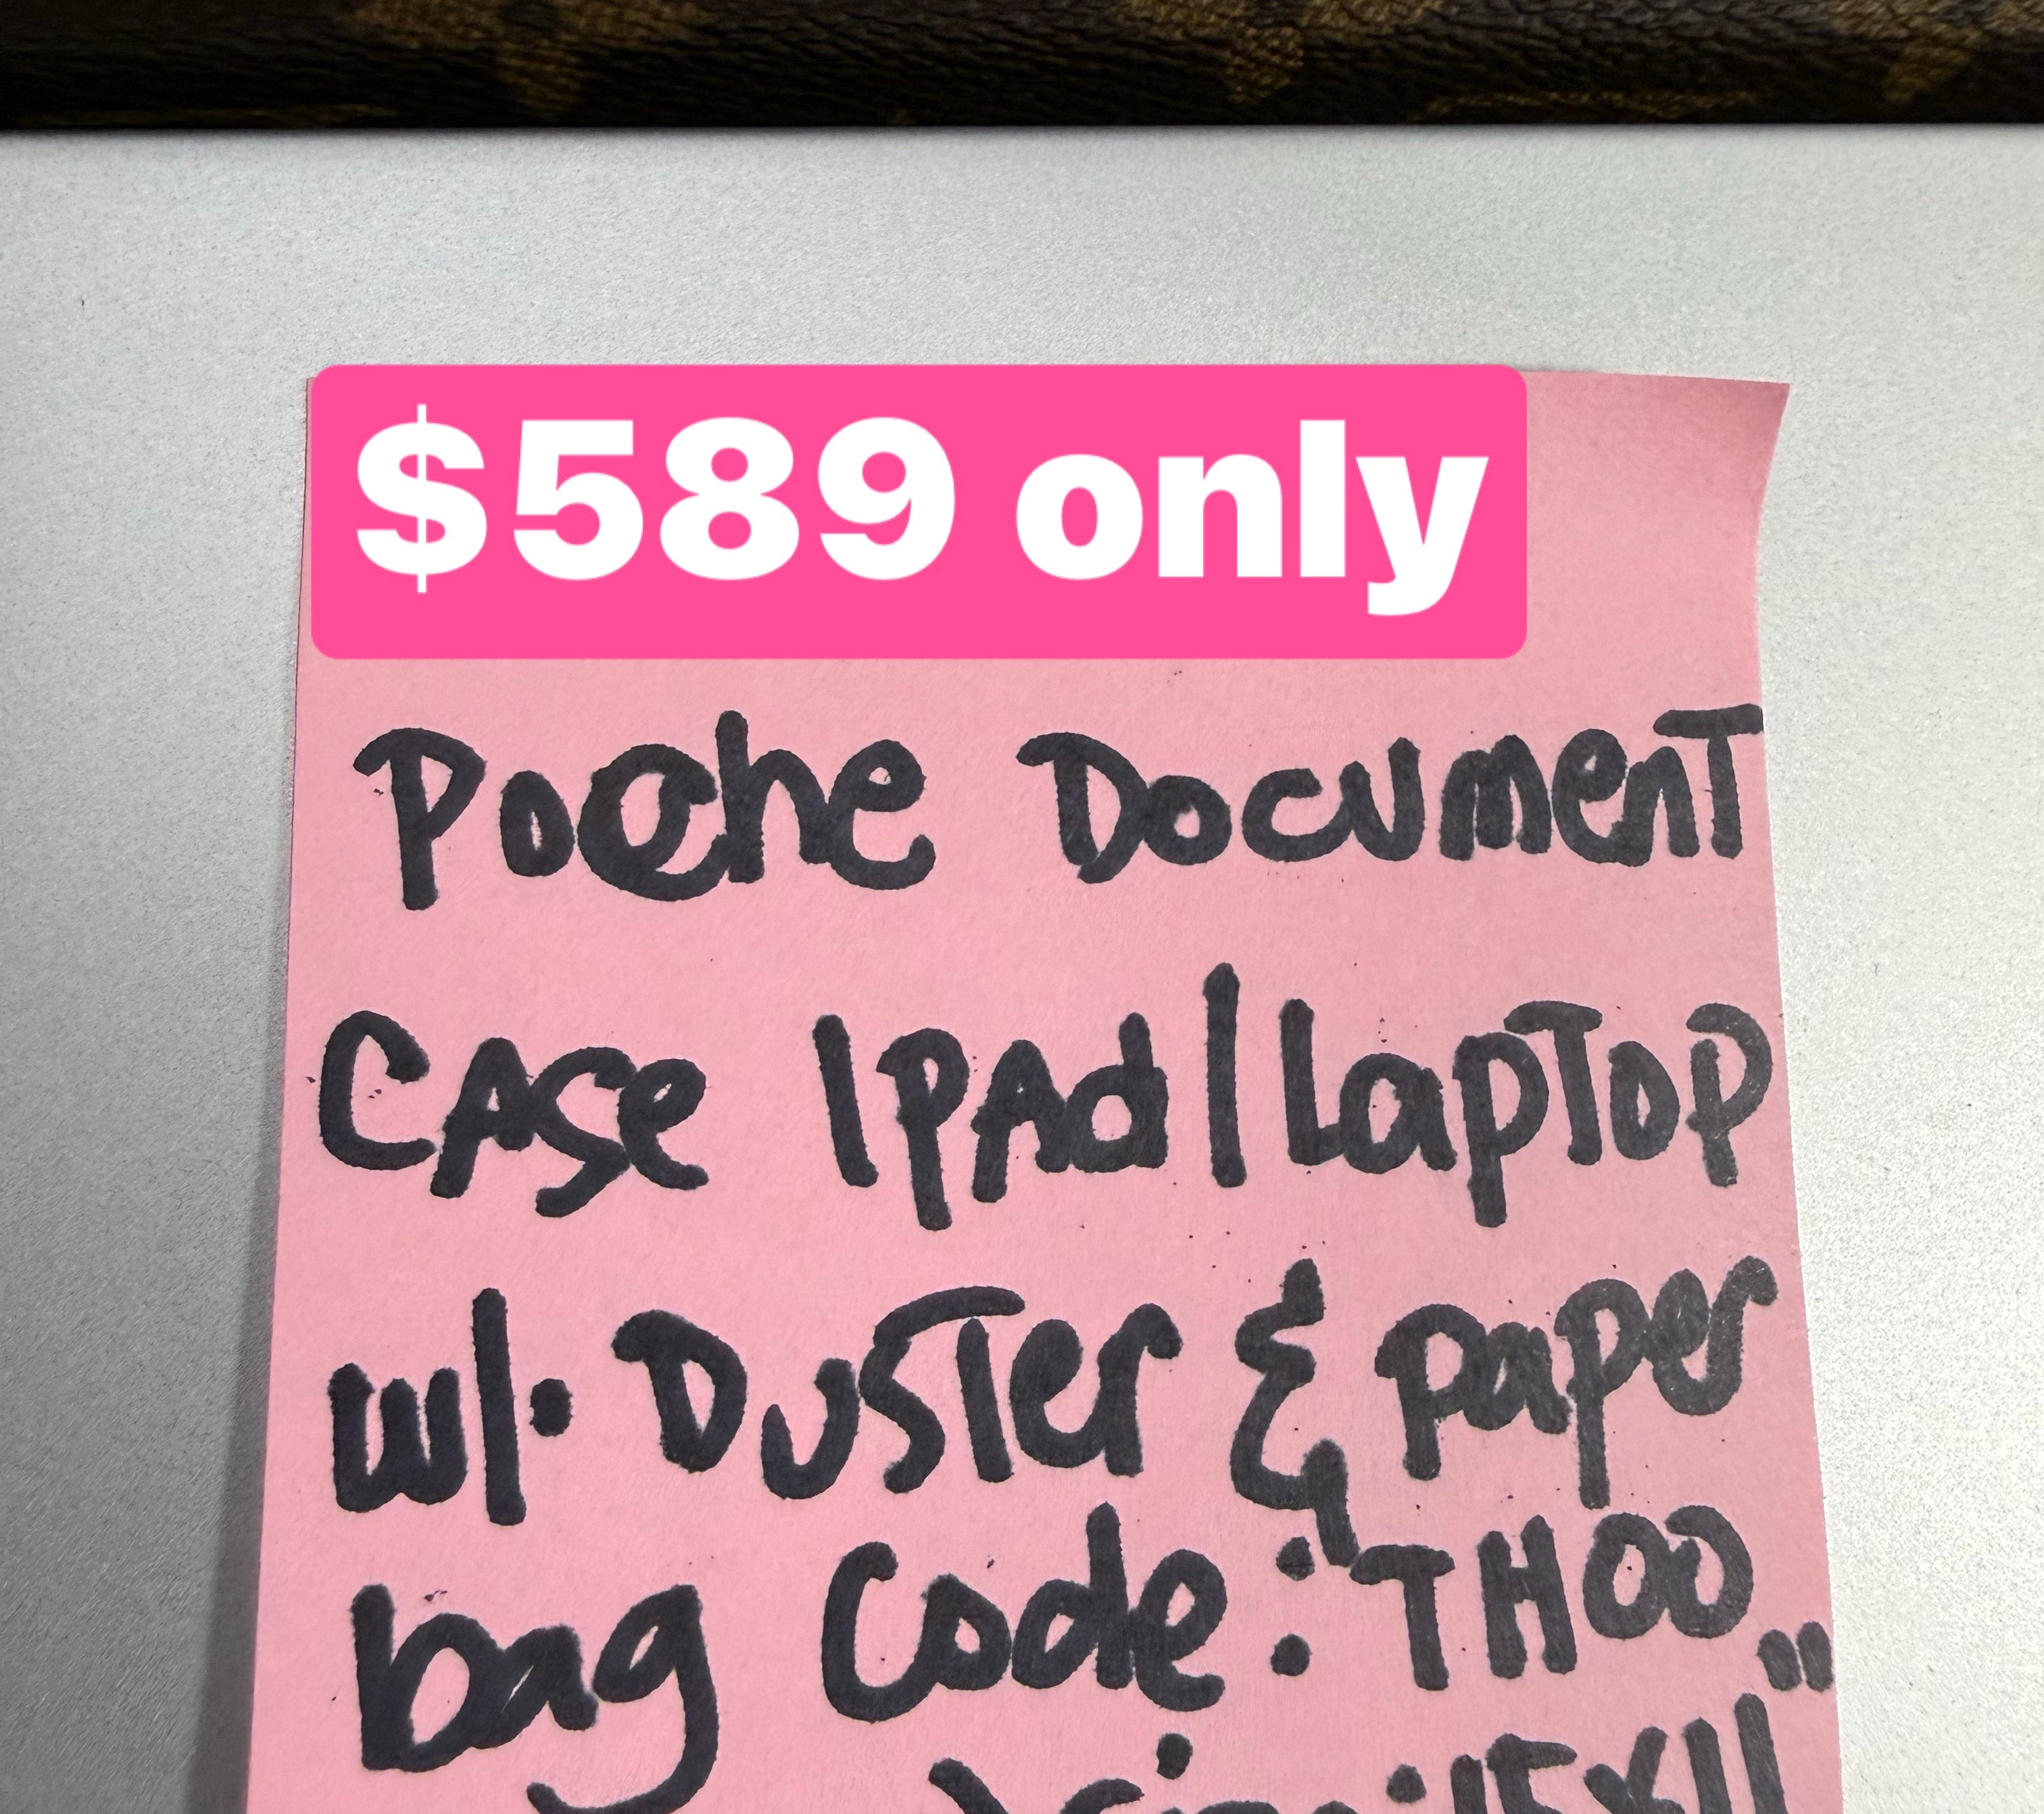 $589 only
Poche Document
Case IPAd/Laptop
w/. Duster & paper
bag Code: TH00
size: 15x11"